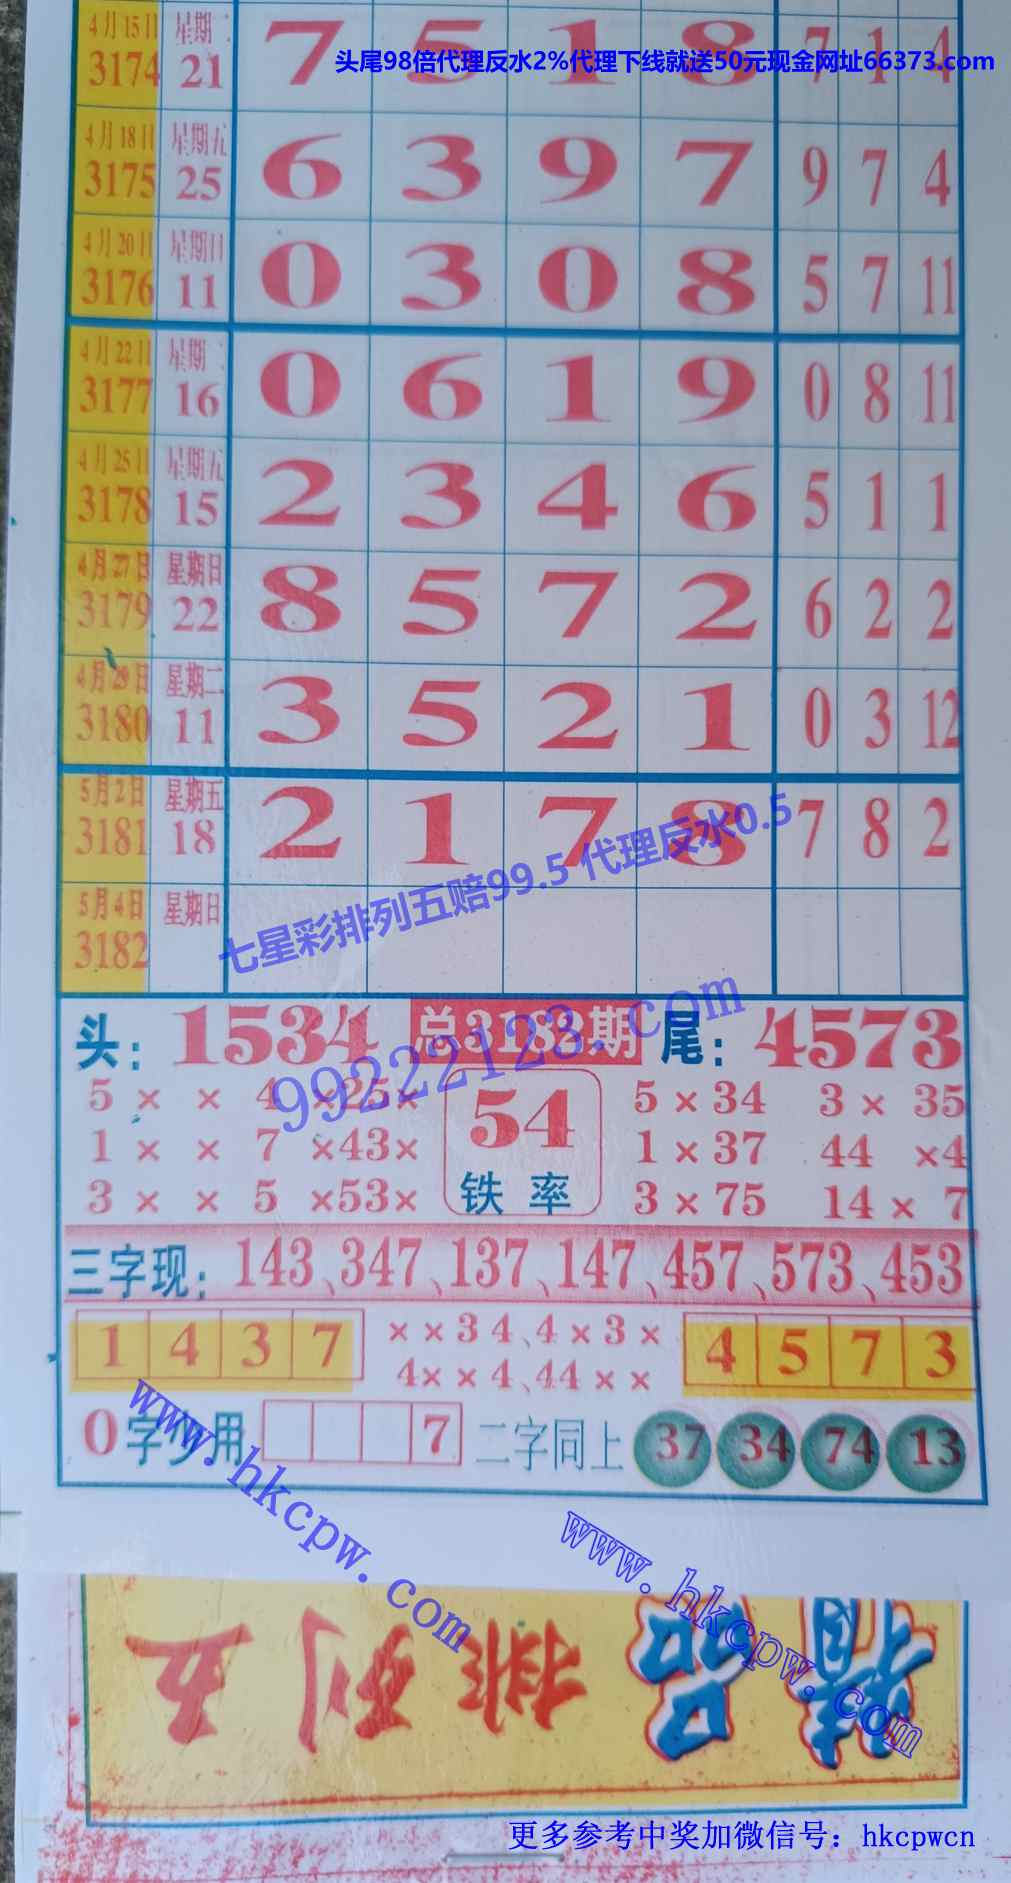 4月15日 星期二
3174 21 7 5 1 8 7 1 4
头尾98倍代理反水2%代理下线就送50元现金网址66373.com
4月18日 星期五
3175 25 6 3 9 7 9 7 4
4月20日 星期日
3176 11 0 3 0 8 5 7 11
4月22日 星期二
3177 16 0 6 1 9 0 8 11
4月25日 星期五
3178 15 2 3 4 6 5 1 1
4月27日 星期日
3179 22 8 5 7 2 6 2 2
4月29日 星期二
3180 11 3 5 2 1 0 3 12
5月2日 星期五
3181 18 2 1 7 8 7 8 2
七星彩排列五赔99.5 代理反水0.5
5月4日 星期日
3182
头: 1534 总3182期 尾: 4573
99222123.com
5 × × 4 ×25× 54 5×34 3× 35
1 × × 7 ×43× 1×37 44 ×4
3 × × 5 ×53× 铁率 3×75 14× 7
三字现: 143、347、137、147、457、573、453
1 4 3 7 ××34、4×3× 4 5 7 3
4××4、44××
0字少用 7 二字同上 37 34 74 13
www.hkcpw.com
www.hkcpw.com
精品 排列五
更多参考中奖加微信号: hkcpwcn